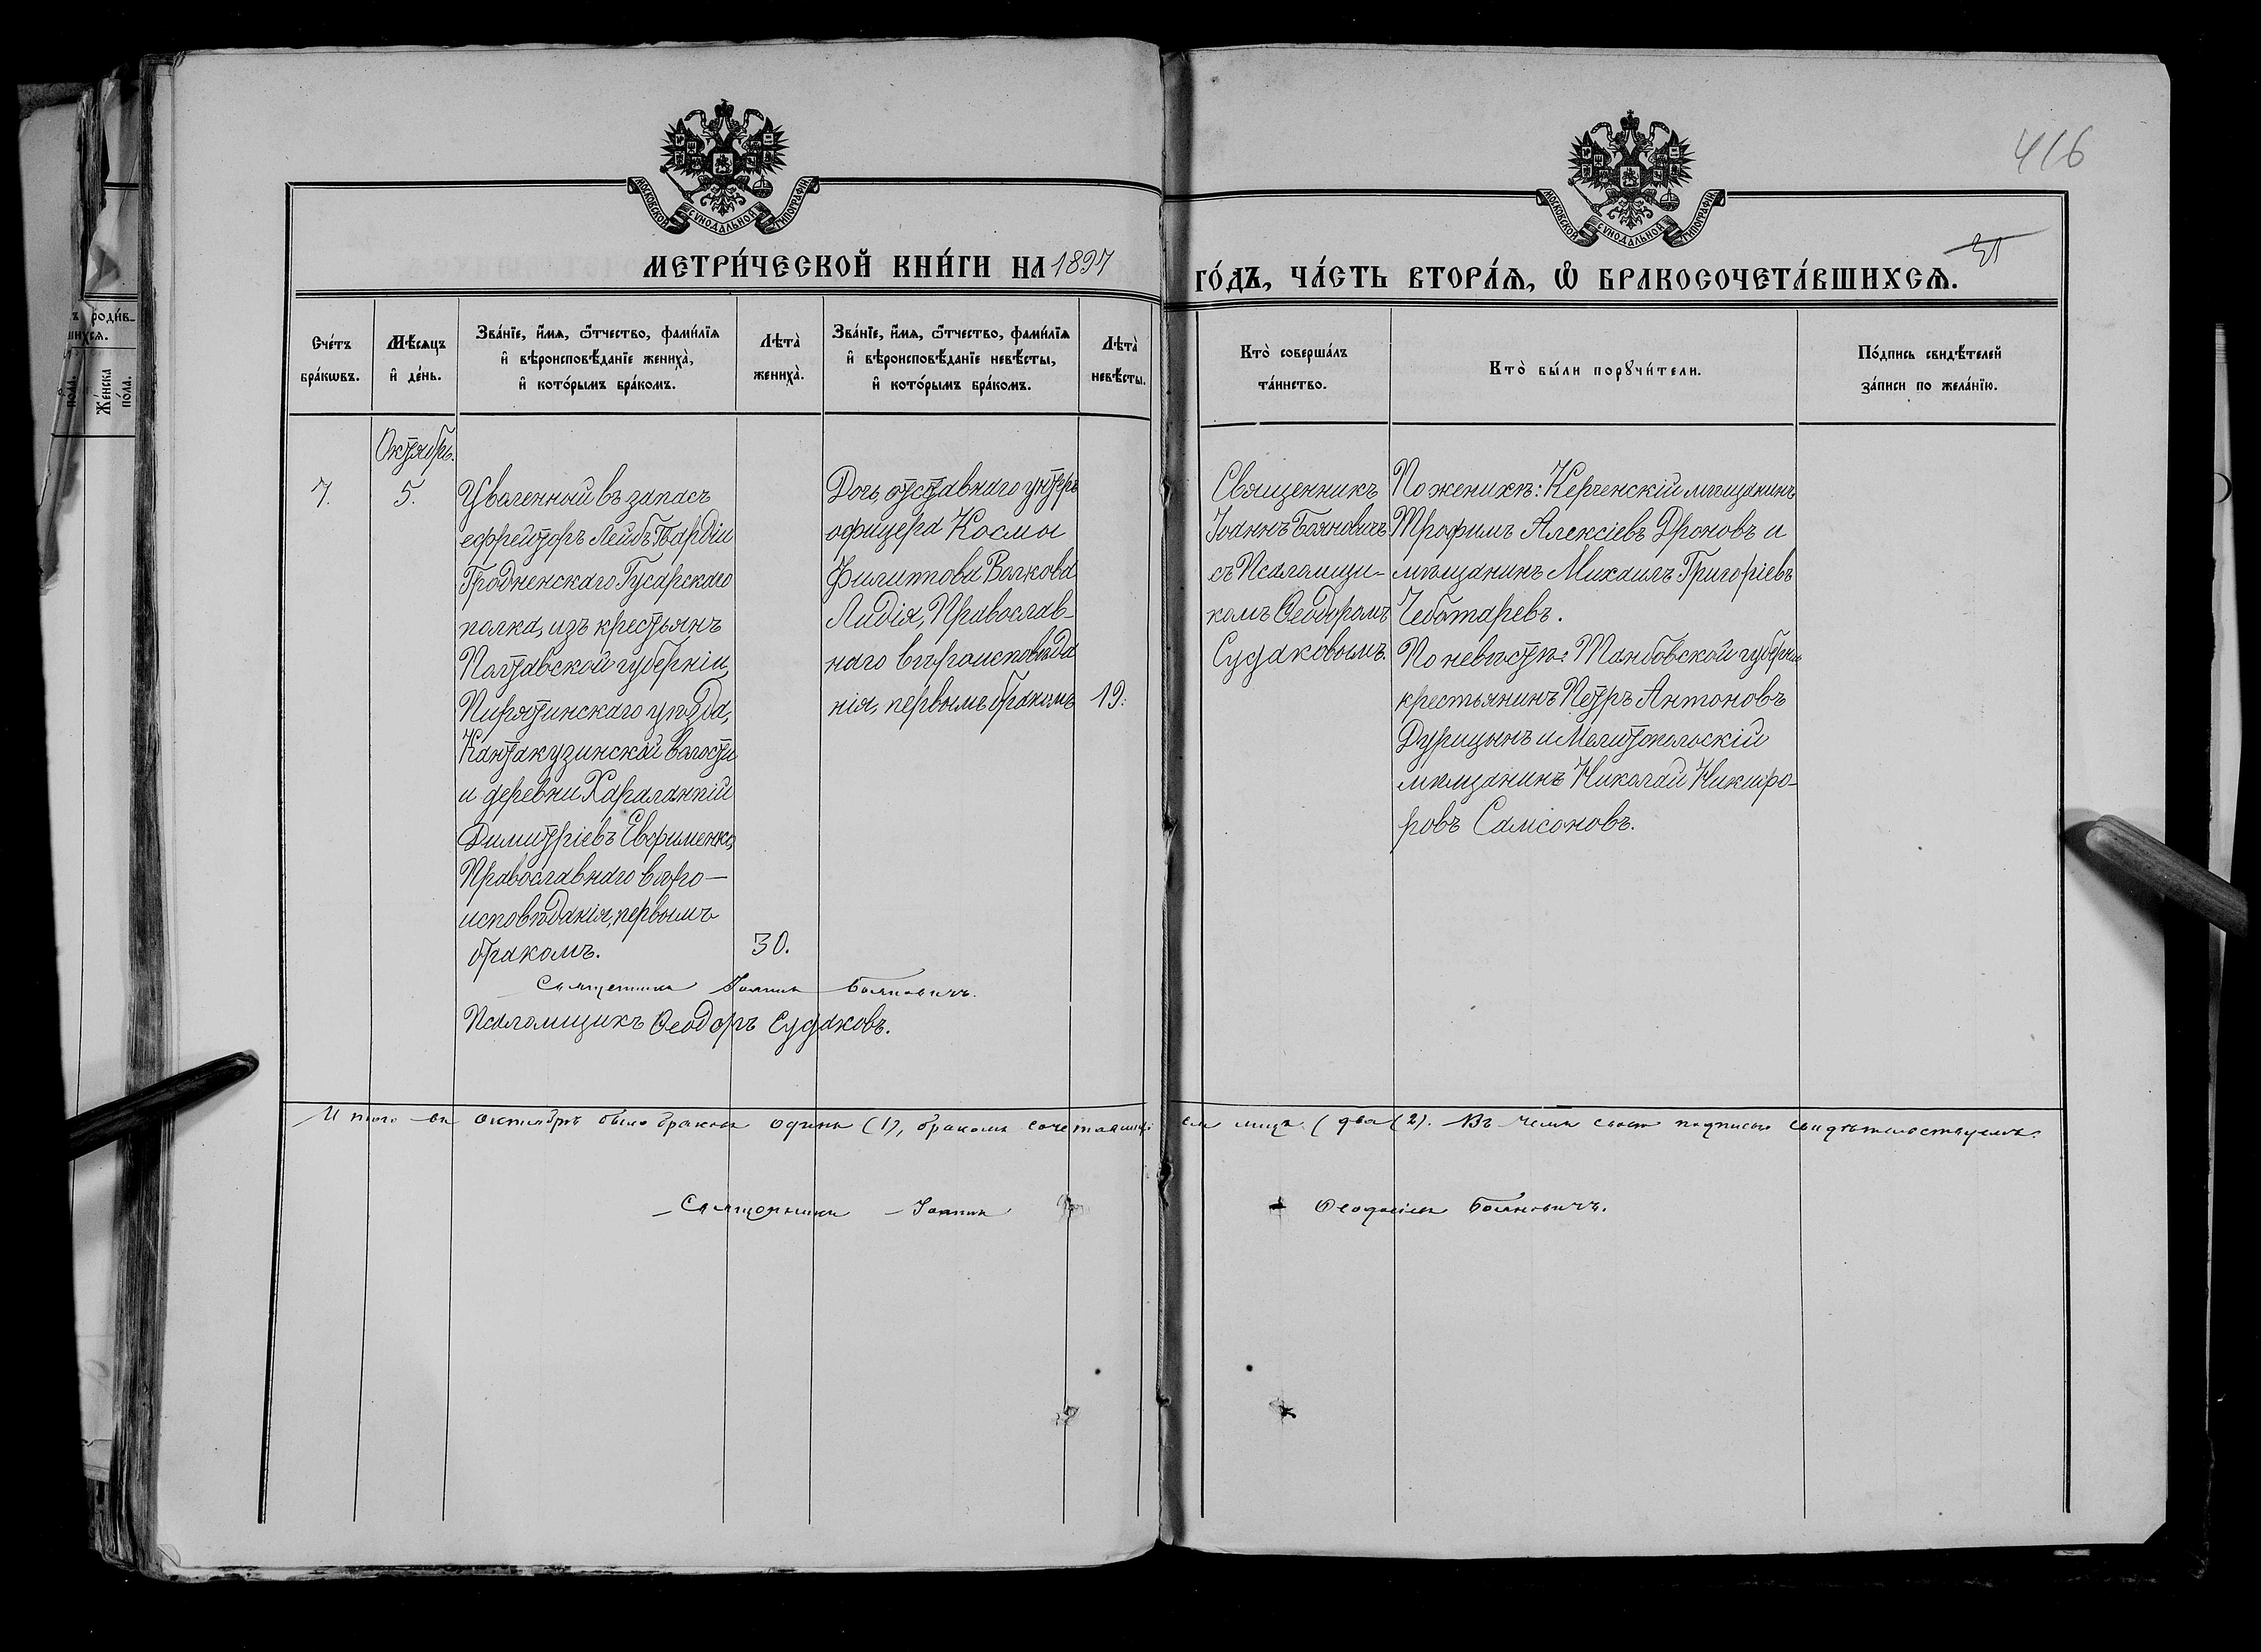 416
31
МОСКОВСКОЙ СѴНОДАЛЬНОЙ ТИПОГРАФІИ.
МОСКОВСКОЙ СѴНОДАЛЬНОЙ ТИПОГРАФІИ.
МЕТРИ́ЧЕСКОЙ КНИ́ГИ НА 1897 ГО́ДЪ, ЧА́СТЬ ВТОРА́Ѧ, Ѡ҆ БРАКОСОЧЕТА́ВШИХСѦ.
Сче́тъ
бра́кѡвъ.
Мѣ́сѧцъ
и҆ де́нь.
Зва́нїе, и҆́мѧ, ѻ҆́тчество, фами́лїѧ
и҆ вѣроисповѣ́данїе жениха̀,
и҆ кото́рымъ бра́комъ.
Лѣта̀
жениха̀.
Зва́нїе, и҆́мѧ, ѻ҆́тчество, фами́лїѧ
и҆ вѣроисповѣ́данїе невѣ́сты,
и҆ кото́рымъ бра́комъ.
Лѣта̀
невѣ́сты.
Кто̀ соверша́лъ
та́инство.
Кто̀ бы́ли порꙋчи́тели.
По́дпись свидѣ́телей
за́писи по жела́нїю.
Октябрь.
7.
5.
Уволенный въ запасъ
ефрейторъ Лейбъ Гвардіи
Гродненскаго Гусарскаго
полка, изъ крестьянъ
Полтавской губерніи
Пирятинскаго уѣзда,
Кантакузинской волости
и деревни Харалампій
Димитріевъ Евфименко,
Православнаго вѣро-
исповѣданія, первымъ
бракомъ.
30.
Дочь отставнаго унтеръ
офицера Космы
Филиппова Волкова
Лидія, Православ-
наго вѣроисповѣда
нія, первымъ бракомъ
19.
Священникъ
Іоаннъ Баяновичъ
съ Псаломщи-
комъ Ѳеодоромъ
Судаковымъ.
По женихѣ: Керченскій мѣщанинъ
Трофимъ Алексіевъ Дроновъ и
мѣщанинъ Михаилъ Григоріевъ
Чеботаревъ.
По невѣстѣ: Тамбовской губерніи
крестьянинъ Петръ Антоновъ
Дурицынъ и Мелитопольскій
мѣщанинъ Николай Никифо-
ровъ Самсоновъ.
Священникъ Іоаннъ Баяновичъ.
Псаломщикъ Ѳеодоръ Судаковъ.
Итого въ октябрѣ было браковъ одинъ (1), бракомъ сочетавшихся лицъ (два (2). Въ чемъ своею подписью свидѣтельствуемъ:
Священникъ Іоаннъ Ѳеодосіевъ Баяновичъ.
ъ роди́в-
шихсѧ.
по́ла.
Же́нска
по́ла.